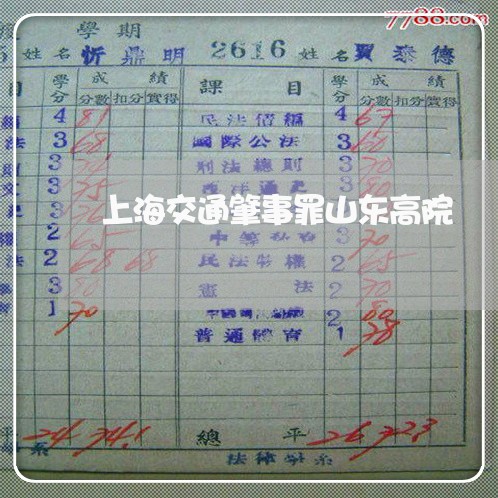 7788.com
學期
姓名 忻鼎明 2616 姓名 賈泰德
目 學分 成績 課目 學分 成績
分數 扣分 實得 分數 扣分 實得
4 81 民法債編 4 67
法 3 68 國際公法 3 60
3 刑法總則 3 70
文 3 75 西洋通史 3 80
上海交通肇事罪山东高院
2 65 3 70
法 2 68 68 民法物權 2 65
3 80 憲法 2 70
1 70 2 80
普通體育 1 78
平 24 74.1 總平 26 72.3
系 法律學系